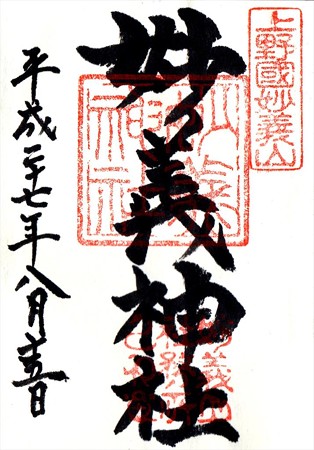 上野國妙義山
妙義神社
平成二十七年八月十五日